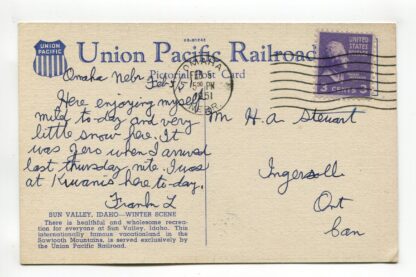 UNION
PACIFIC
Union Pacific Railroad
Pictorial Post Card
OMAHA
FEB 5
PM
1951
NEBR.
3 CENTS 3
Omaha Nebr Feb-5/51
Here enjoying myself
mild to-day and very
little snow here. It
was zero when I arrived
last thursday nite. I was
at Kiwanis here to-day.
Frank L
Mr H. A Stewart
Ingersoll
Ont
Can
SUN VALLEY, IDAHO—WINTER SCENE
There is healthful and wholesome recrea-
tion for everyone at Sun Valley, Idaho. This
internationally famous vacationland in the
Sawtooth Mountains, is served exclusively by
the Union Pacific Railroad.